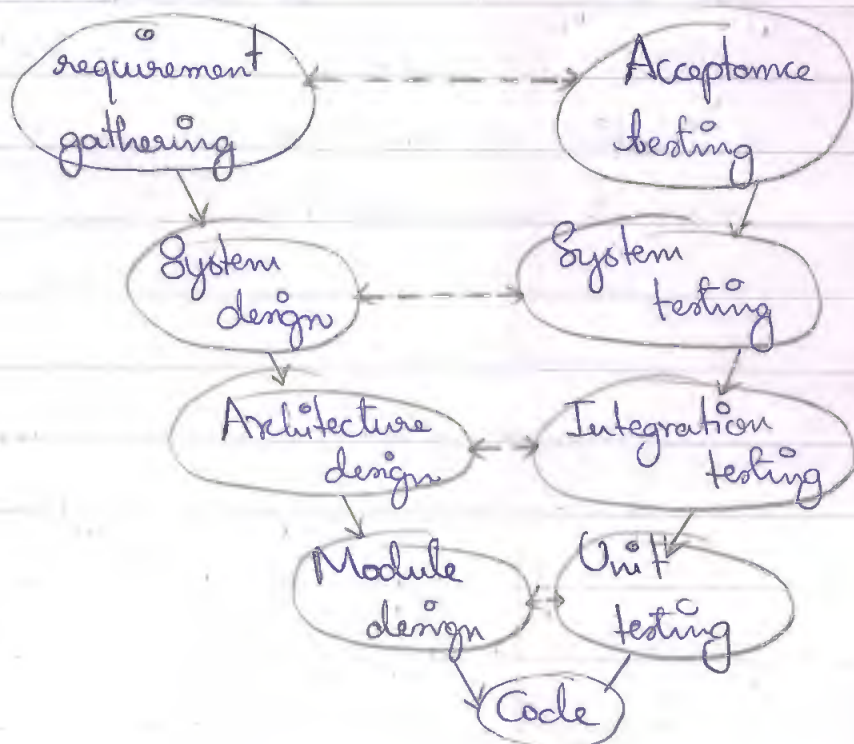 requirement
gathering
Acceptamce
testing
System
design
System
testing
Architecture
design
Integration
testing
Module
design
Unit
testing
Code